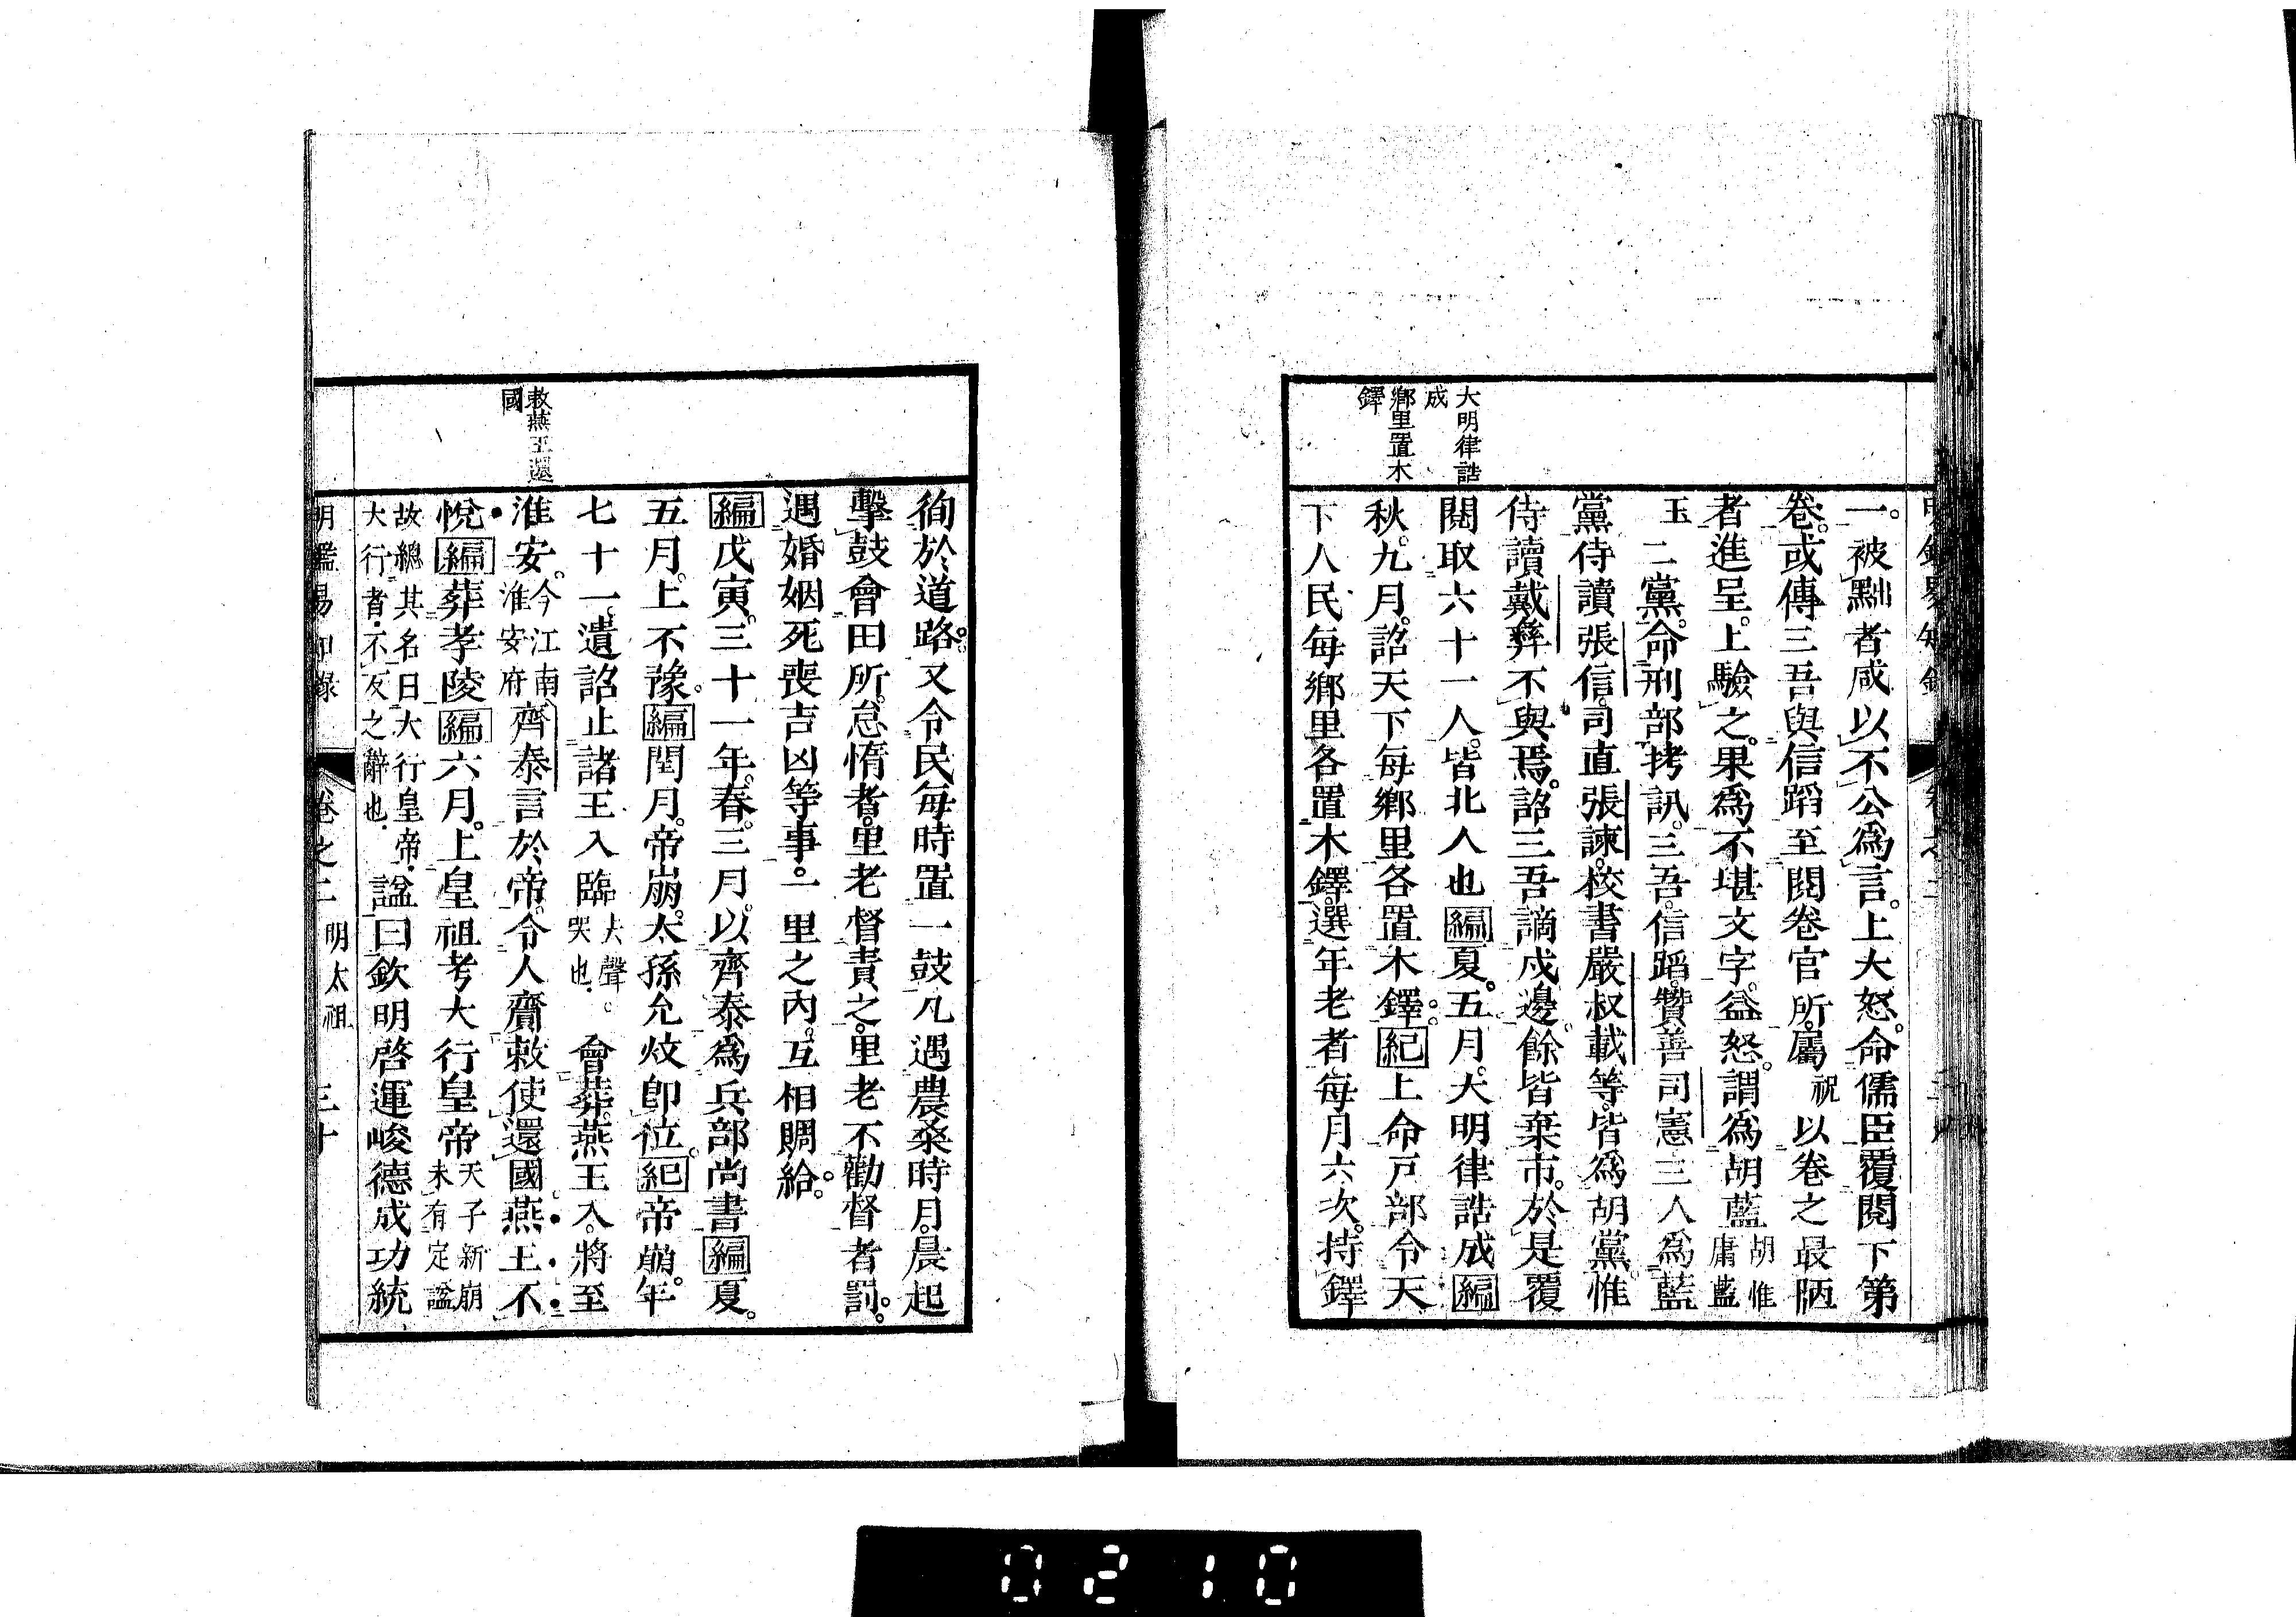 大明律誥
成
鄕里置木
鐸
一。被黜者咸以不公爲言。上大怒。命儒臣覆閱下第
卷。或傳三吾與信蹈至閱卷官所。屬祝以卷之最陋
者進呈。上驗之。果爲不堪文字。益怒。謂爲胡藍胡惟庸藍
玉二黨。命刑部拷訊。三吾。信蹈。贊善司憲三人爲藍
黨侍讀張信。司直張諫。校書嚴叔載等。皆爲胡黨。惟
侍讀戴彝不與焉。詔三吾謫戍邊。餘皆棄市。於是覆
閱取六十一人。皆北人也編夏。五月。大明律誥成編
秋。九月。詔天下每鄕里各置木鐸。紀上命戸部令天
下人民每鄕里各置木鐸。選年老者每月六次。持鐸
徇於道路。又令民每時置一鼓凡遇農桑時月。晨起
擊鼓會田所。怠惰者。里老督責之。里老不勸督者罰。
遇婚姻死喪吉凶等事。一里之內。互相賙給。
編戊寅。三十一年。春。三月。以齊泰爲兵部尚書編夏。
五月。上不豫。編閏月。帝崩。太孫允炆卽位。紀帝崩。年
七十一。遺詔止諸王入臨大聲。哭也。會葬。燕王入。將至
淮安。今江南淮安府齊泰言於帝。令人齎敕使還國燕王不
悅編葬孝陵編六月。上皇祖考大行皇帝天子新崩未有定諡
故總其名曰大行皇帝。大行者。不反之辭也。諡曰欽明啓運峻德成功統
敕燕王還
國
明鑑易知錄 卷之二 明太祖 三十